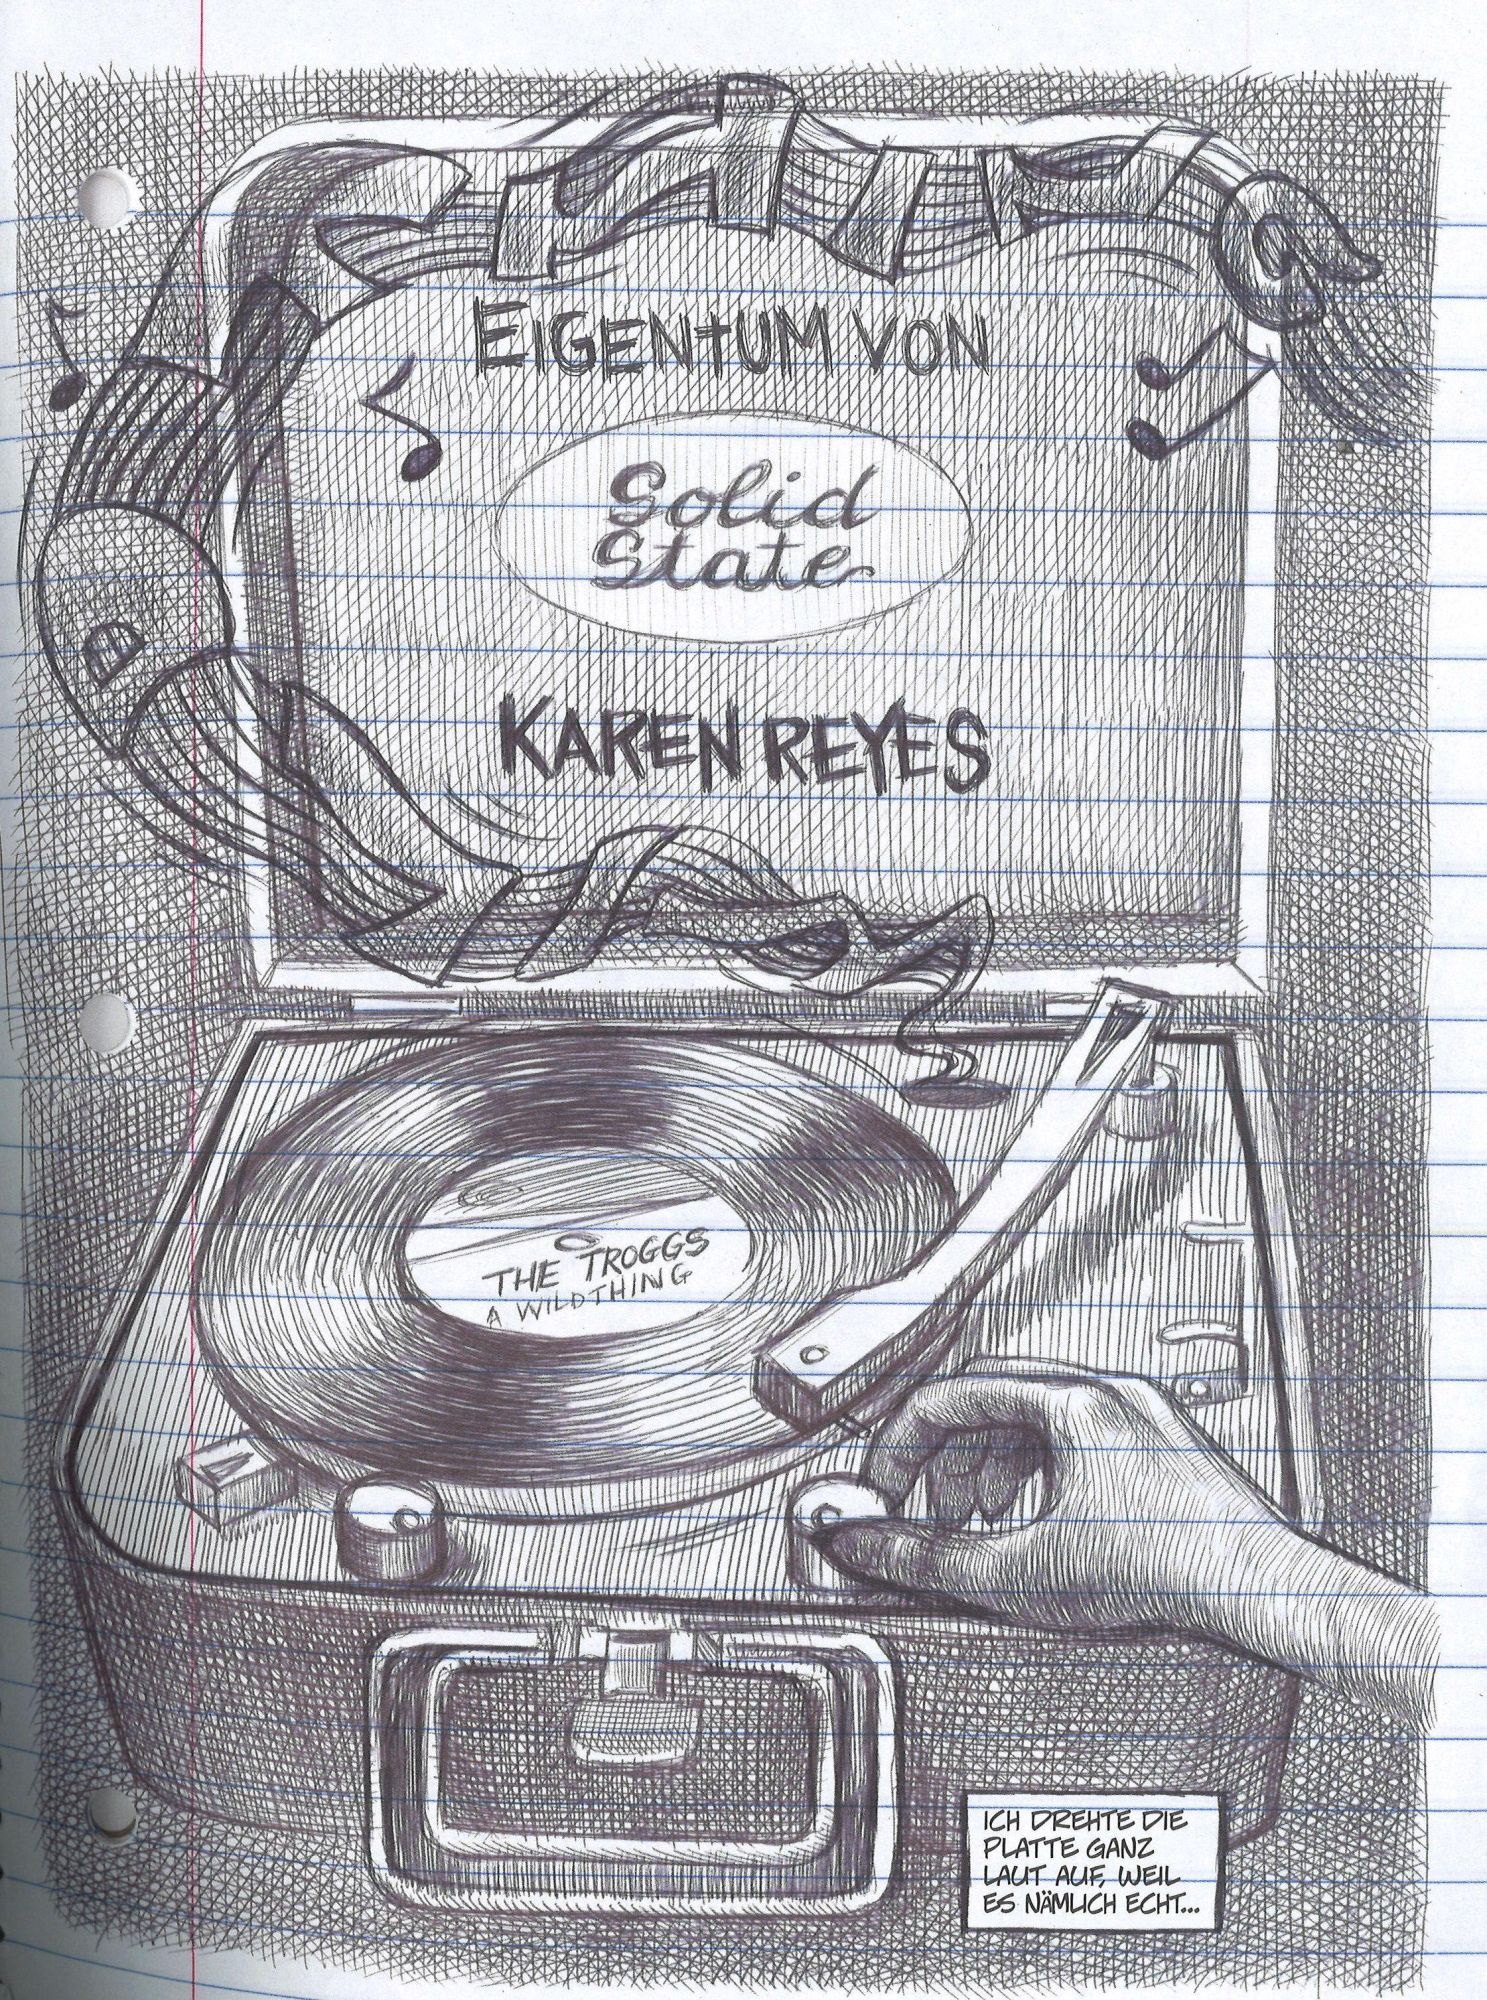 EIGENTUM VON
Solid
State
KAREN REYES
THE TROGGS
A WILD THING
ICH DREHTE DIE
PLATTE GANZ
LAUT AUF, WEIL
ES NÄMLICH ECHT...